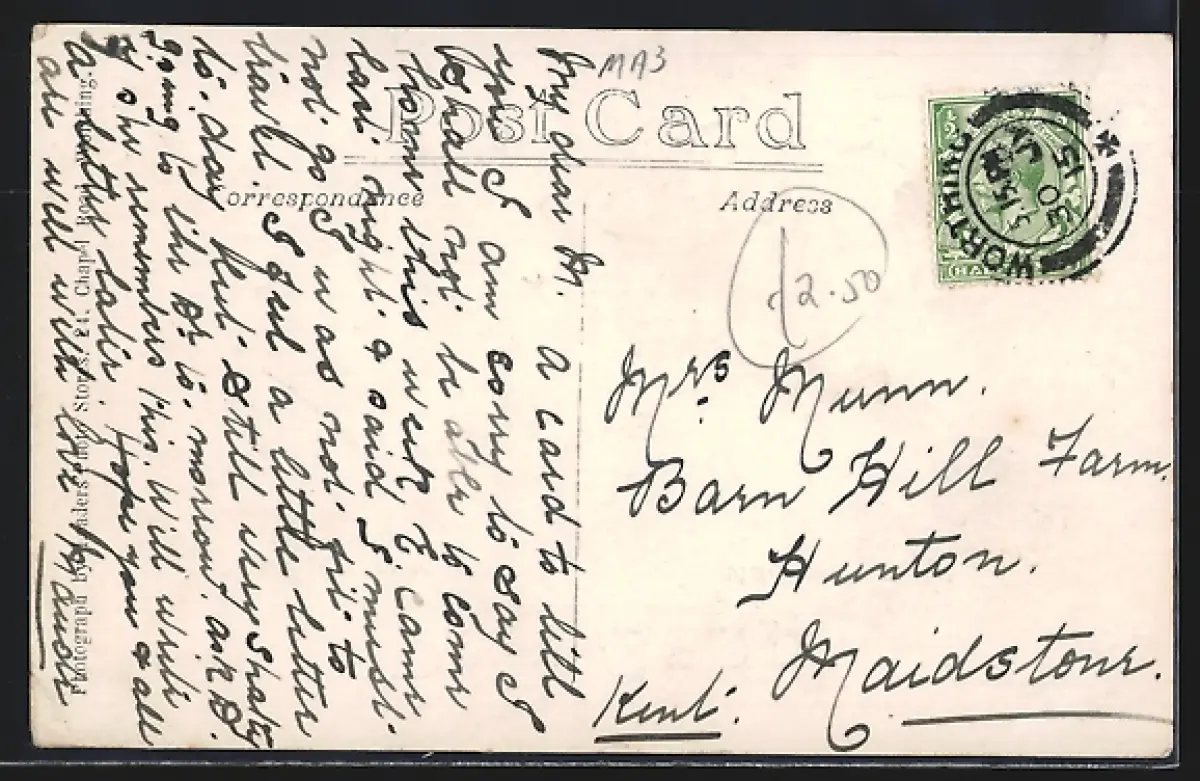 MA3
Post Card
orrespondence
Address
WORTHING
5.15 PM
30 JY
15
HA
£2.50
Mrs Munn.
Barn Hill Farm.
Hunton.
Maidstone.
Kent.
My dear M. A card to till
you I am sorry to say I
shall not be able to come
home this week. E. came
last night & said I must
not go I was not fit to
travil. I feel a little better
to-day but still very shaky
going to the Dr to-morrow. ask D.
if she remembers this. Will write
a better latir. Hope you & all
are well with love Maude
Photograph by Loaders Photo Stores, 24, Chapel Road, Worthing.